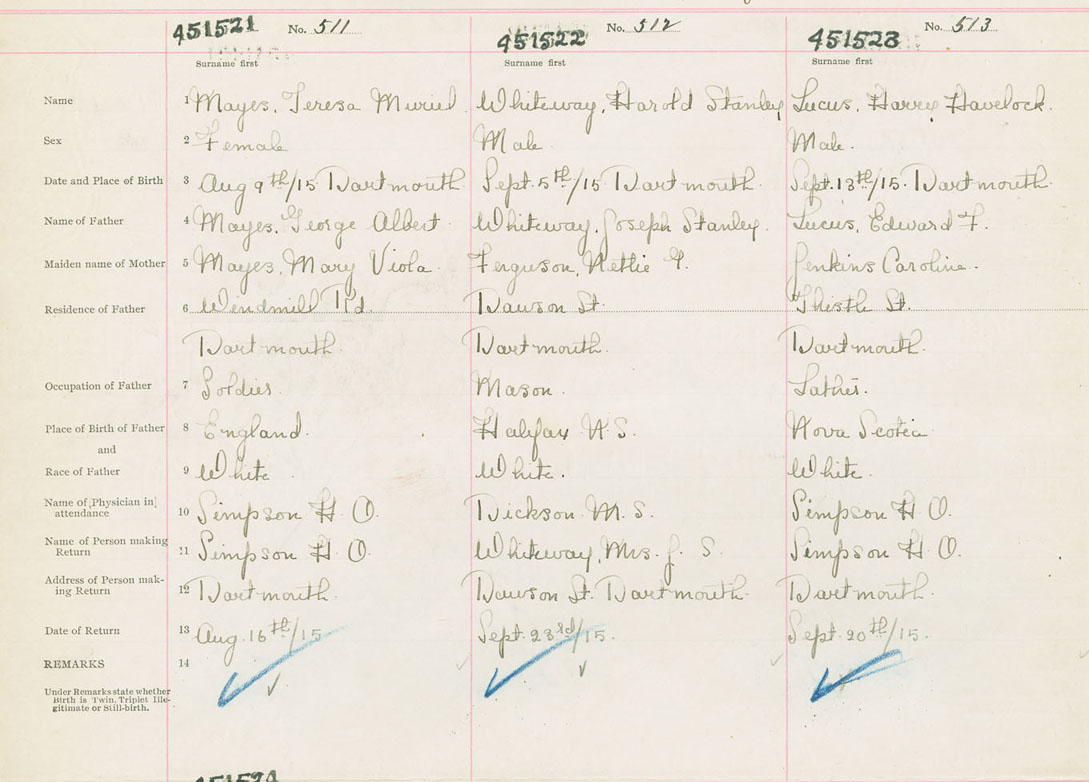 451521 No. 511 451522 No. 512 451523 No. 513
Surname first Surname first Surname first
Name 1 Mayes, Teresa Muriel Whiteway, Harold Stanley Lucus, Harry Havelock.
Sex 2 Female Male Male.
Date and Place of Birth 3 Aug 9th/15 Dartmouth Sept. 5th/15 Dartmouth. Sept. 13th/15. Dartmouth
Name of Father 4 Mayes, George Albert Whiteway, Joseph Stanley. Lucus, Edward F.
Maiden name of Mother 5 Mayes, Mary Viola. Ferguson, Nettie G. Jenkins Caroline.
Residence of Father 6 Windmill Rd. Dawson St. Thistle St.
Dartmouth. Dartmouth. Dartmouth.
Occupation of Father 7 Soldier. Mason. Lather.
Place of Birth of Father 8 England. Halifax N.S. Nova Scotia
and
Race of Father 9 White White. White.
Name of Physician in
attendance 10 Simpson H O. Dickson M. S. Simpson H O.
Name of Person making
Return 11 Simpson H O. Whiteway, Mrs. J. S. Simpson H O.
Address of Person mak-
ing Return 12 Dartmouth. Dawson St. Dartmouth. Dartmouth.
Date of Return 13 Aug. 16th/15 Sept. 23rd/15. Sept. 20th/15.
REMARKS 14
Under Remarks state whether
Birth is Twin, Triplet Ille-
gitimate or Still-birth.
451524